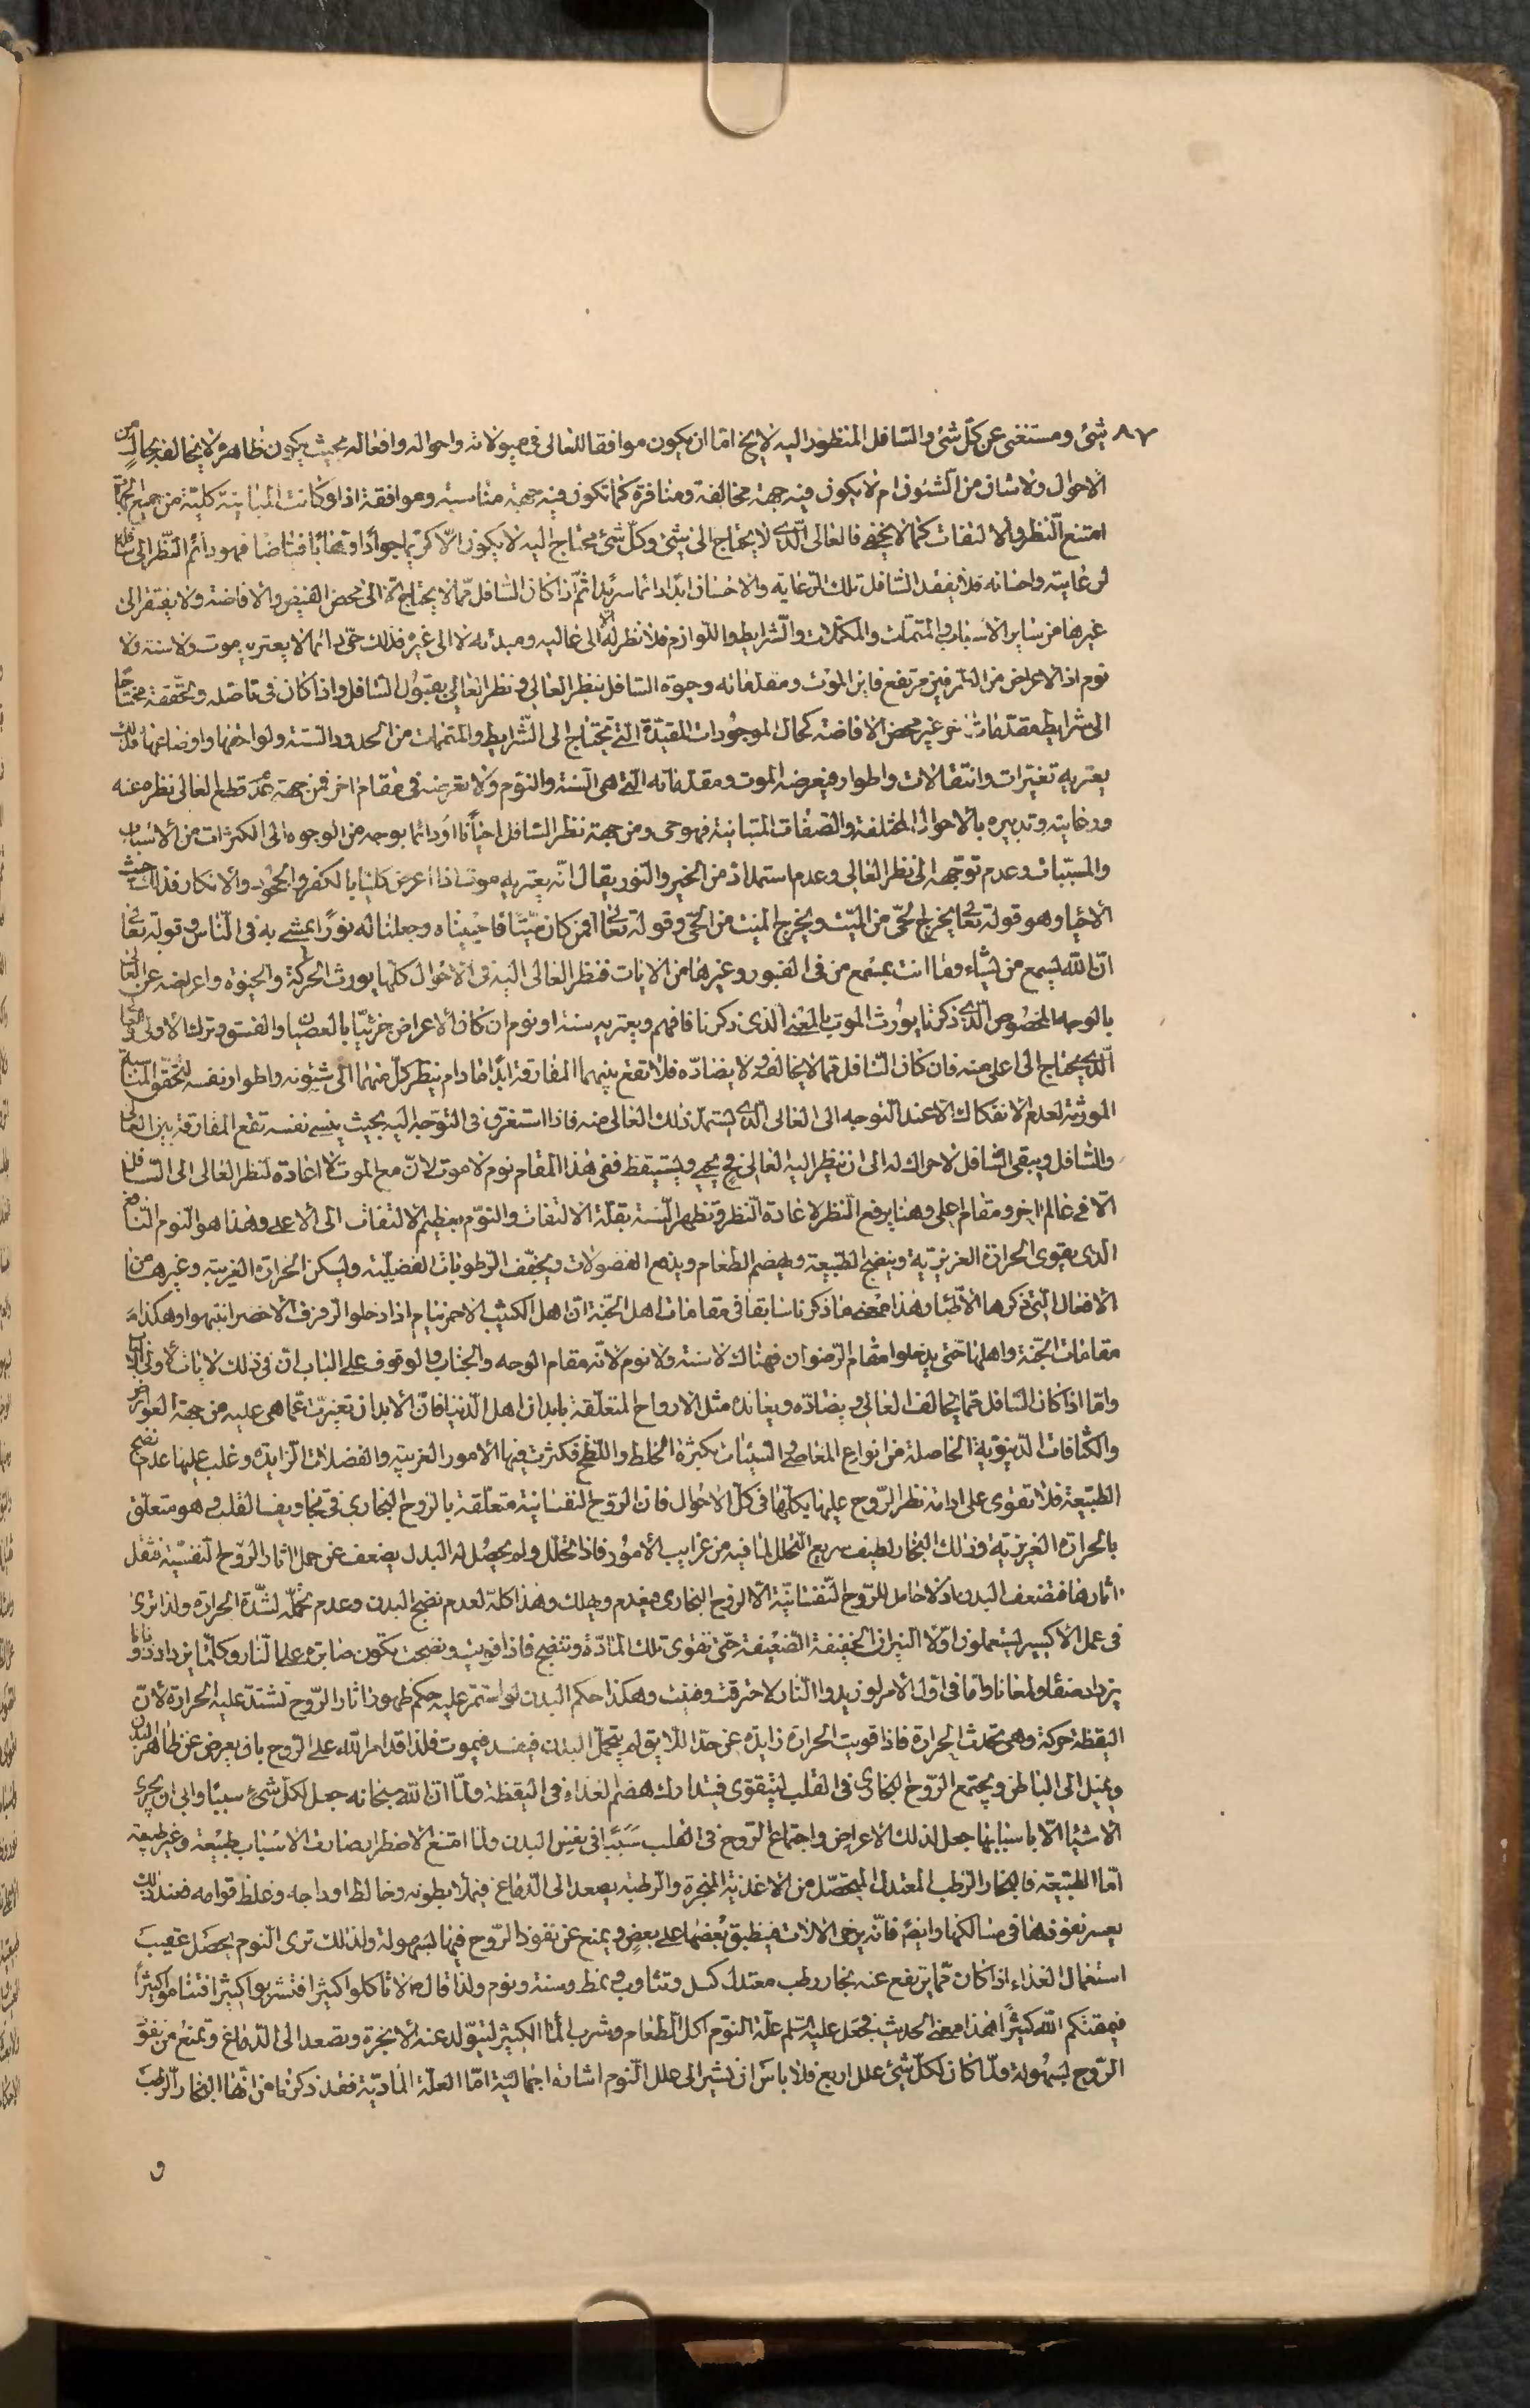 ٨٧ شئ ومستغنى عن كلّ شئ والسّافل المنظور اليه لا يخ امّا ان يكون موافقا للعالى فى ميولاته واحواله وافعاله بحيث يكون ظاهره لا يخالفه بحال من
الاحوال ولا شان من الشئون ام لا يكون فيه جهة مخالفة ومنافرة كما تكون فيه جهة مناسبة وموافقة اذ لو كانت المباينة كليّة من جميع الجهات
امتنع النّظر والالتفات كما لا يخفى فالعالى الّذى لا يحتاج الى شئ وكلّ شئ محتاج اليه لا يكون الّا كريما جوادا وهّابا فيّاضا فهو دائم النّظر الى سافله
لرعايته واحسانه فلا يفقد السّافل تلك الرّعاية والاحسان ابدا دائما سرمدا ثمّ اذا كان السّافل ممّا لا يحتاج الّا الى محض الفيض والافاضة ولا يفتقر الى
غيرها من ساير الاسباب والمتمّمات والمكمّلات والشّرايط واللّوازم فلا نظر له الّا الى عاليه ومبدئه لا الى غيره فذلك حىّ دائما لا يعتريه موت ولا سنة ولا
نوم اذ الاعراض من الطّرفين مرتفع فاين الموت ومقدّماته وحيوة السّافل بنظر العالى ونظر العالى بقبول السّافل واذا كان فى تاصّله وتحقّقه محتاجا
الى شرايط مقدّمات اخر غير محض الافاضة كحال الموجودات المقيّدة الّتى تحتاج الى الشّرايط والمتمّمات من الحدود السّتة ولواحقها واوضاعها فذلك
يعتريه تغييرات وانتقالات واطوار فيعرضه الموت ومقدّماته الّتى هى السّنة والنّوم ولا تعرضه فى مقام اخر فمن جهة عدم قطع العالى نظره عنه
ورعايته وتدبيره بالاحوال المختلفة والصّفات المتباينة فهو حى ومن جهة نظر السّافل احيانا او دائما بوجه من الوجوه الى الكثرات من الاسباب
والمسبّبات وعدم توجّهه الى نظر العالى وعدم استمداده من الخير والنّور يقال انّه يعتريه موت اذا اعرض كليّا بالكفر والجحود والانكار فذلك ميّت
الاحياء وهو قوله تعالى يخرج الحىّ من الميّت ويخرج الميّت من الحىّ وقوله تعالى افمن كان ميّتا فاحييناه وجعلنا له نورًا يمشى به فى النّاس وقوله تعالى
انّ الله يسمع من يشاء وما انت بمسمع من فى القبور وغيرها من الايات فنظر العالى اليه فى الاحوال كلّها يورث الحركة والحيوة واعراضه عن العالى
بالوجه المخصوص الّذى ذكرنا يورث الموت بالمعنى الذى ذكرنا فافهم ويعتريه سنة او نوم ان كان الاعراض جزئيّا بالعصيان والفسق وترك الاولى والعالى
الّذى يحتاج الى اعلى منه فان كان السّافل ممّا لا يخالفه ولا يضادّه فلا تقع بينهما المفارقة ابدًا ما دام ينظر كلّ منهما الى شئونه واطوار نفسه لتحقّق المناسبة
المورثة لعدم الانفكاك الّا عند التّوجه الى العالى الّذى يستمدّ ذلك العالى منه فاذا استغرق فى التّوجّه اليه بحيث ينسى نفسه تقع المفارقة بين العالى
والسّافل ويبقى السّافل لا حراك له الى ان ينظر اليه العالى فح يحيى ويستيقظ ففى هذا المقام نوم لا موت لانّ مع الموت لا اعادة لنظر العالى الى السّافل
الّا فى عالم اخر ومقام اعلى وهنا يرفع النّظر لاعادة النّظر وتظهر السّنة بقلّة الالتفات والنّوم بعظيم الالتفات الى الاعلى وهذا هو النّوم النّافع
الّذى يقوى الحرارة الغريزيّة وينضج الطّبيعة ويهضم الطّعام ويدفع الفضولات ويجفّف الرّطوبات الفضليّة ويسكن الحرارة الغريبة وغيرها من
الافعال الّتى ذكرها الاطبّاء وهذا معنى ما ذكرنا سابقا فى مقامات اهل الجنّة انّ اهل الكثيب الاحمر نيام اذا دخلوا الرّفرف الاخضر انتبهوا وهكذا
مقامات الجنّة واهلها حتّى يدخلوا مقام الرّضوان فهناك لا سنة ولا نوم لانّه مقام الوجه والجناب والوقوف على الباب انّ فى ذلك لايات لاولى الالباب
وامّا اذا كان السّافل ممّا يخالف العالى ويضادّه ويعانده مثل الارواح المتعلّقة بابدان اهل الدّنيا فانّ الابدان تغيّرت عمّا هى عليه من جهة العوارض
والكثافات الدّنيويّة الحاصلة من انواع المعاصى والسّيئات بكثرة الخلط واللّطخ فكثرت فيها الامور الغريبة والفضلات الزّايدة وغلب عليها عدم نضج
الطّبيعة فلا تقوى على ادامة نظر الرّوح عليها بكلّها فى كلّ الاحوال فانّ الرّوح النّفسانيّة متعلّقة بالرّوح البخارى فى تجاويف القلب وهو متعلّق
بالحرارة الغريزيّة وذلك البخار لطيف سريع التّحلّل لما فيه من غرايب الامور فاذا تحلّل ولم يحصل له البدل يضعف عن حمل اثار الرّوح النّفسيّة فتقل
اثارها فتضعف البدن اذ لا حامل للرّوح النّفسانيّة الّا الرّوح البخارى فيعدم ويهلك وهذا كلّه لعدم نضج البدن وعدم تحمّله لشدّة الحرارة ولذا ترى
فى عمل الاكسير يستعملون اوّلا النيران الخفيفة الضّعيفة حتّى تقوى تلك المادّة وتنضج فاذا قويت ونضجت تكون صابرة على النّار وكلّما يزداد ذوبانا
يزداد صفاء ولمعانا وامّا فى اوّل الامر لو زيدوا النّار لاحترقت وفنيت وهكذا حكم البدن لو استمرّ عليه حكم ظهور اثار الرّوح تشتدّ عليه الحرارة لانّ
اليقظة حركة وهى تحدث الحرارة فاذا قويت الحرارة زايدة عن حدّ اللّايق لم يتحمّل البدن فيفسد فيموت فلذا قد امر الله على الرّوح بان يعرض عن ظاهر البدن
ويميل الى الباطن ويجتمع الرّوح البخارى فى القلب ليتقوى فيتدارك هضم الغذاء فى اليقظة ولمّا انّ الله سبحانه جعل لكلّ شئ سببًا وابى ان يجرى
الاشياء الّا باسبابها جعل لذلك الاعراض واجتماع الرّوح فى القلب سَبَبًا فى نفس البدن ولمّا امتنع الاضطرار صارت الاسباب طبيعة وغير طبيعة
امّا الطّبيعة فالبخار الرّطب المعتدل المتحصّل من الاغذية المبخرة والرّطبة يصعد الى الدّماغ فيملأ بطونه وخالط اوداجه وغلظ قوامه فعند ذلك
يعسر نفوذها فى مسالكها وايضًا فانّه يرخى الالات فينطبق بعضها على بعض ويمنع عن نفوذ الرّوح فيها بسهولة ولذلك ترى النّوم يحصل عقيب
استعمال الغذاء اذا كان ممّا يرتفع عنه بخار رطب معتدل كسل وتثاوب وتمط وسنة ونوم ولذا قال ص لا تاكلوا كثيرا فتشربوا كثيرا فتناموا كثيرًا
فيمقتكم الله كثيرًا هذا معنى الحديث فجعل عليه السّلم علّة النّوم اكل الطّعام وشرب الماء الكثير لتتولّد عنه الابخرة وتصعد الى الدّماغ وتمنع من نفوذ
الرّوح بسهولة ولمّا كان لكلّ شئ علل اربع فلا باس ان نشير الى علل النّوم اشارة اجماليّة امّا العلّة المادّيّة فقد ذكرنا من انّها البخار الرّطب
و